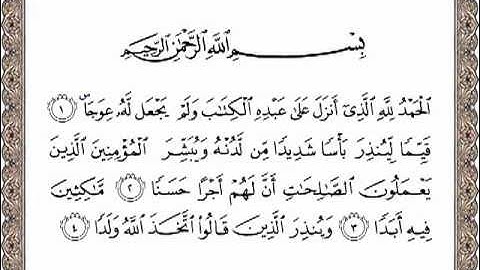 بِسْمِ اللَّهِ الرَّحْمَٰنِ الرَّحِيمِ
الْحَمْدُ لِلَّهِ الَّذِي أَنْزَلَ عَلَىٰ عَبْدِهِ الْكِتَابَ وَلَمْ يَجْعَلْ لَهُ عِوَجًا ۜ ١
قَيِّمًا لِيُنْذِرَ بَأْسًا شَدِيدًا مِنْ لَدُنْهُ وَيُبَشِّرَ الْمُؤْمِنِينَ الَّذِينَ
يَعْمَلُونَ الصَّالِحَاتِ أَنَّ لَهُمْ أَجْرًا حَسَنًا ٢ مَاكِثِينَ
فِيهِ أَبَدًا ٣ وَيُنْذِرَ الَّذِينَ قَالُوا اتَّخَذَ اللَّهُ وَلَدًا ٤